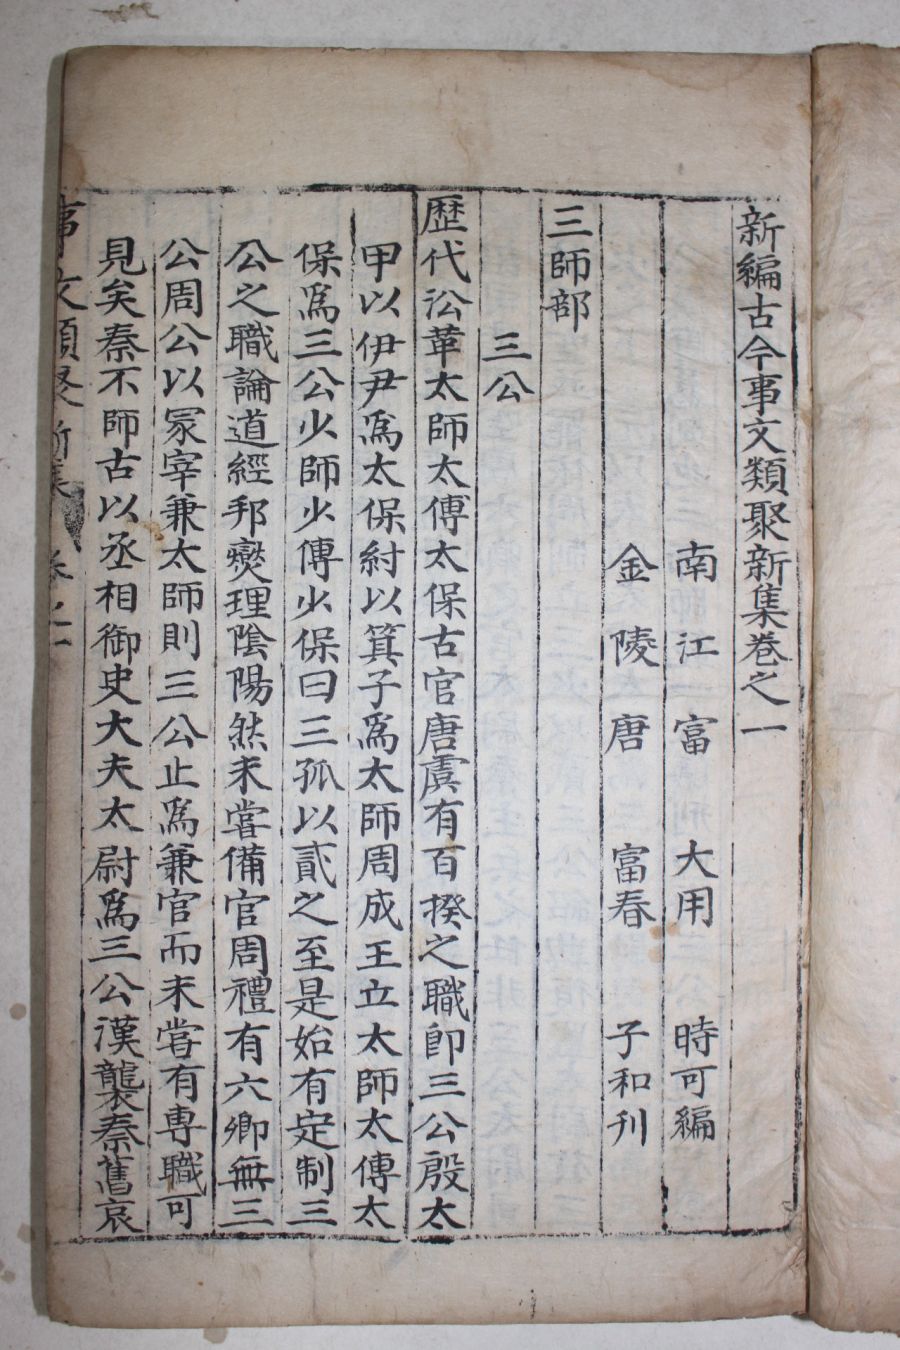 新編古今事文類聚新集卷之一
南江富大用時可編
金陵唐富春子和刋
三師部
三公
歷代㳂革太師太傅太保古官唐虞有百揆之職卽三公殷太
甲以伊尹爲太保紂以箕子爲太師周成王立太師太傅太
保爲三公少師少傅少保曰三孤以貳之至是始有定制三
公之職論道經邦爕理陰陽然未嘗備官周禮有六卿無三
公周公以冢宰兼太師則三公止爲兼官而未嘗有專職可
見矣秦不師古以丞相御史大夫太尉爲三公漢襲秦舊哀
事文類聚新集 卷之一